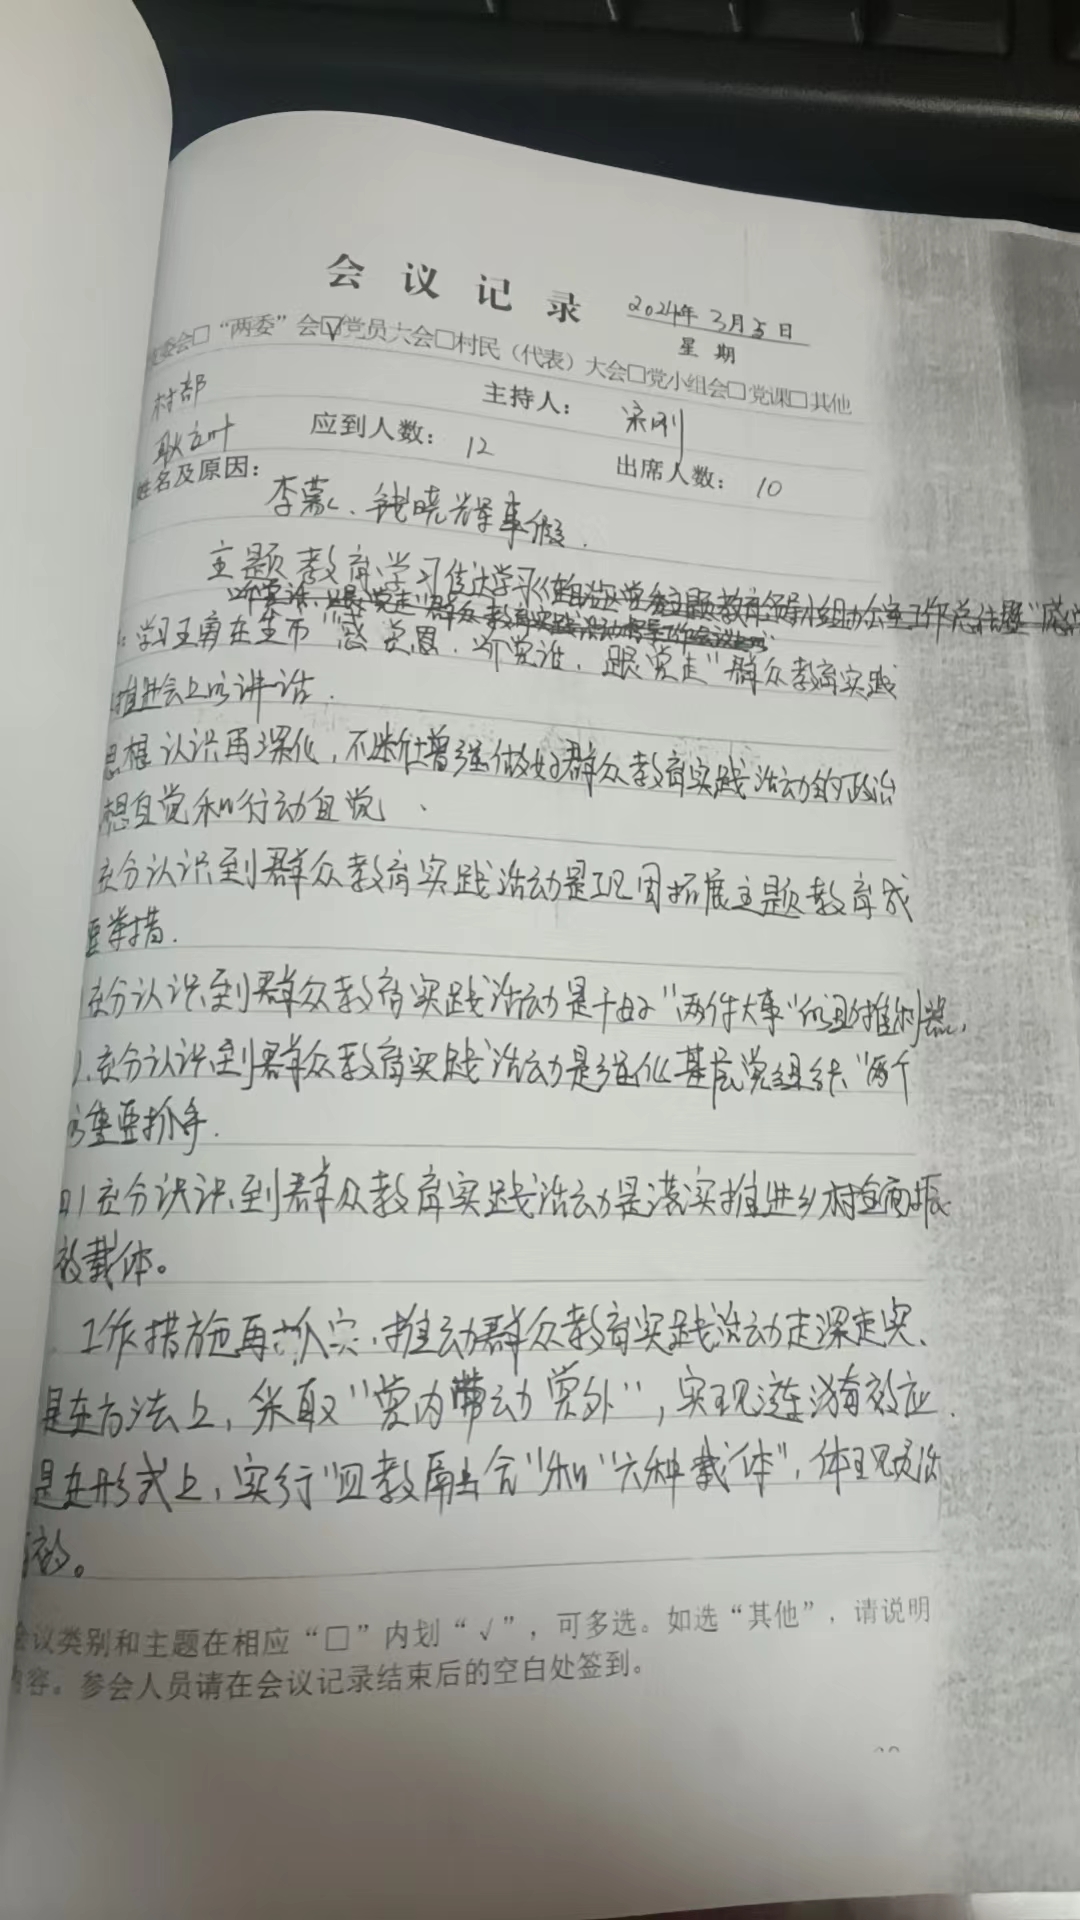 会议记录
2024年3月5日
星期
委会□“两委”会☑党员大会□村民（代表）大会□党小组会□党课□其他
村部 主持人： 宋刚
应到人数： 12 出席人数： 10
姓名及原因： 李 、钱晓辉事假.
主题教育学习传达学习《自治区党委主题教育领导小组办公室工作总结暨“感党
听党话、跟党走”群众教育实践活动 工作会议
：学习王勇在全市“感党恩、听党话、跟党走”群众教育实践
推进会上的讲话.
思想认识再深化，不断增强做好群众教育实践活动的政治
想自觉和行动自觉、
充分认识到群众教育实践活动是巩固拓展主题教育成
要举措.
充分认识到群众教育实践活动是干好“两件大事”的 推 器，
充分认识到群众教育实践活动是强化基层党组织“两个
的重要抓手.
充分认识到群众教育实践活动是落实推进乡村全面振
效载体。
工作措施再抓实，推动群众教育实践活动走深走实、
是在方法上，采取“党内带动党外”，实现涟漪有效应.
是在形式上，实行“四教融合”和“六种载体”，体现灵活
效。
会议类别和主题在相应“□”内划“√”，可多选。如选“其他”，请说明
内容。参会人员请在会议记录结束后的空白处签到。